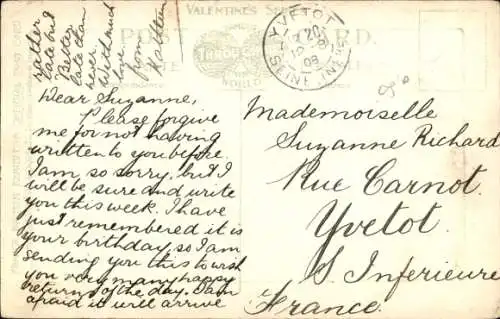 Dear Suzanne,
Please forgive
me for not having
written to you before.
I am so sorry, but I
will be sure and write
you this week. I have
just remembered it is
your birthday, so I am
sending you this to wish
you very many happy
returns of the day. I am
afraid it will arrive
rather
late but
Better
late than
never.
With much
love
from
Kathleen
VALENTINE'S SERIES
YVETOT
SEINE INFRE
08
Mademoiselle
Suzanne Richard
Rue Carnot.
Yvetot.
S. Inferieure
France.